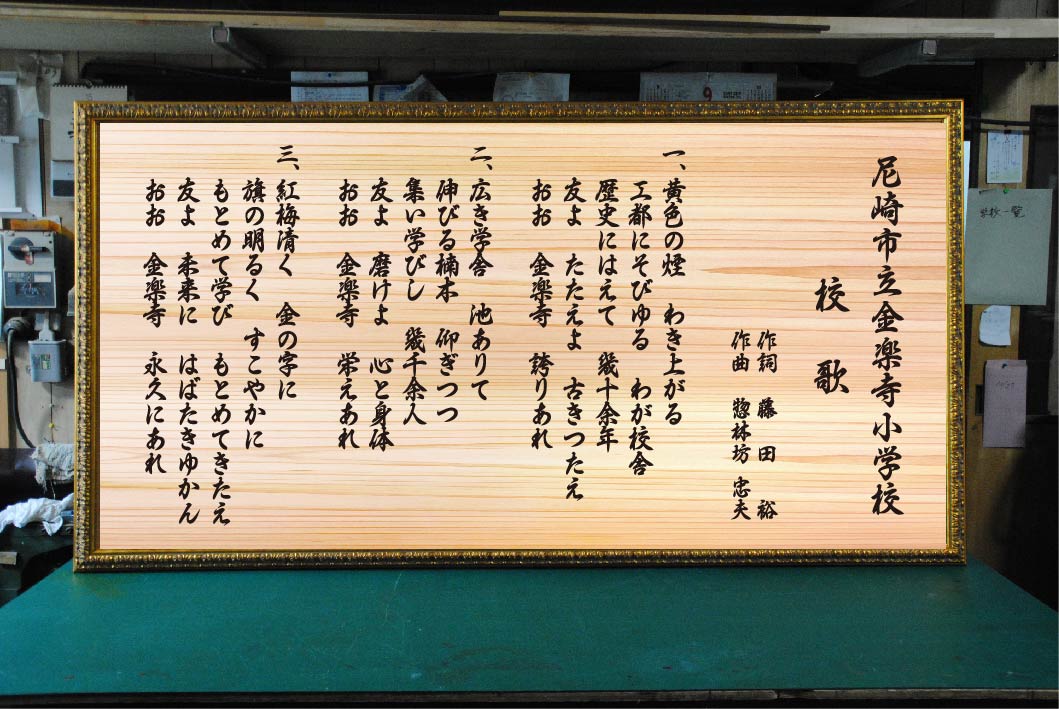 尼崎市立金楽寺小学校
校歌
作詞 藤田 裕
作曲 惣林坊 忠夫
一、黄色の煙 わき上がる
工都にそびゆる わが校舎
歴史にはえて 幾十余年
友よ たたえよ 古きつたえ
おお 金楽寺 誇りあれ
二、広き学舎 池ありて
伸びる楠木 仰ぎつつ
集い学びし 幾千余人
友よ 磨けよ 心と身体
おお 金楽寺 栄えあれ
三、紅梅清く 金の字に
旗の明るく すこやかに
もとめて学び もとめてきたえ
友よ 未来に はばたきゆかん
おお 金楽寺 永久にあれ
9
学校一覧